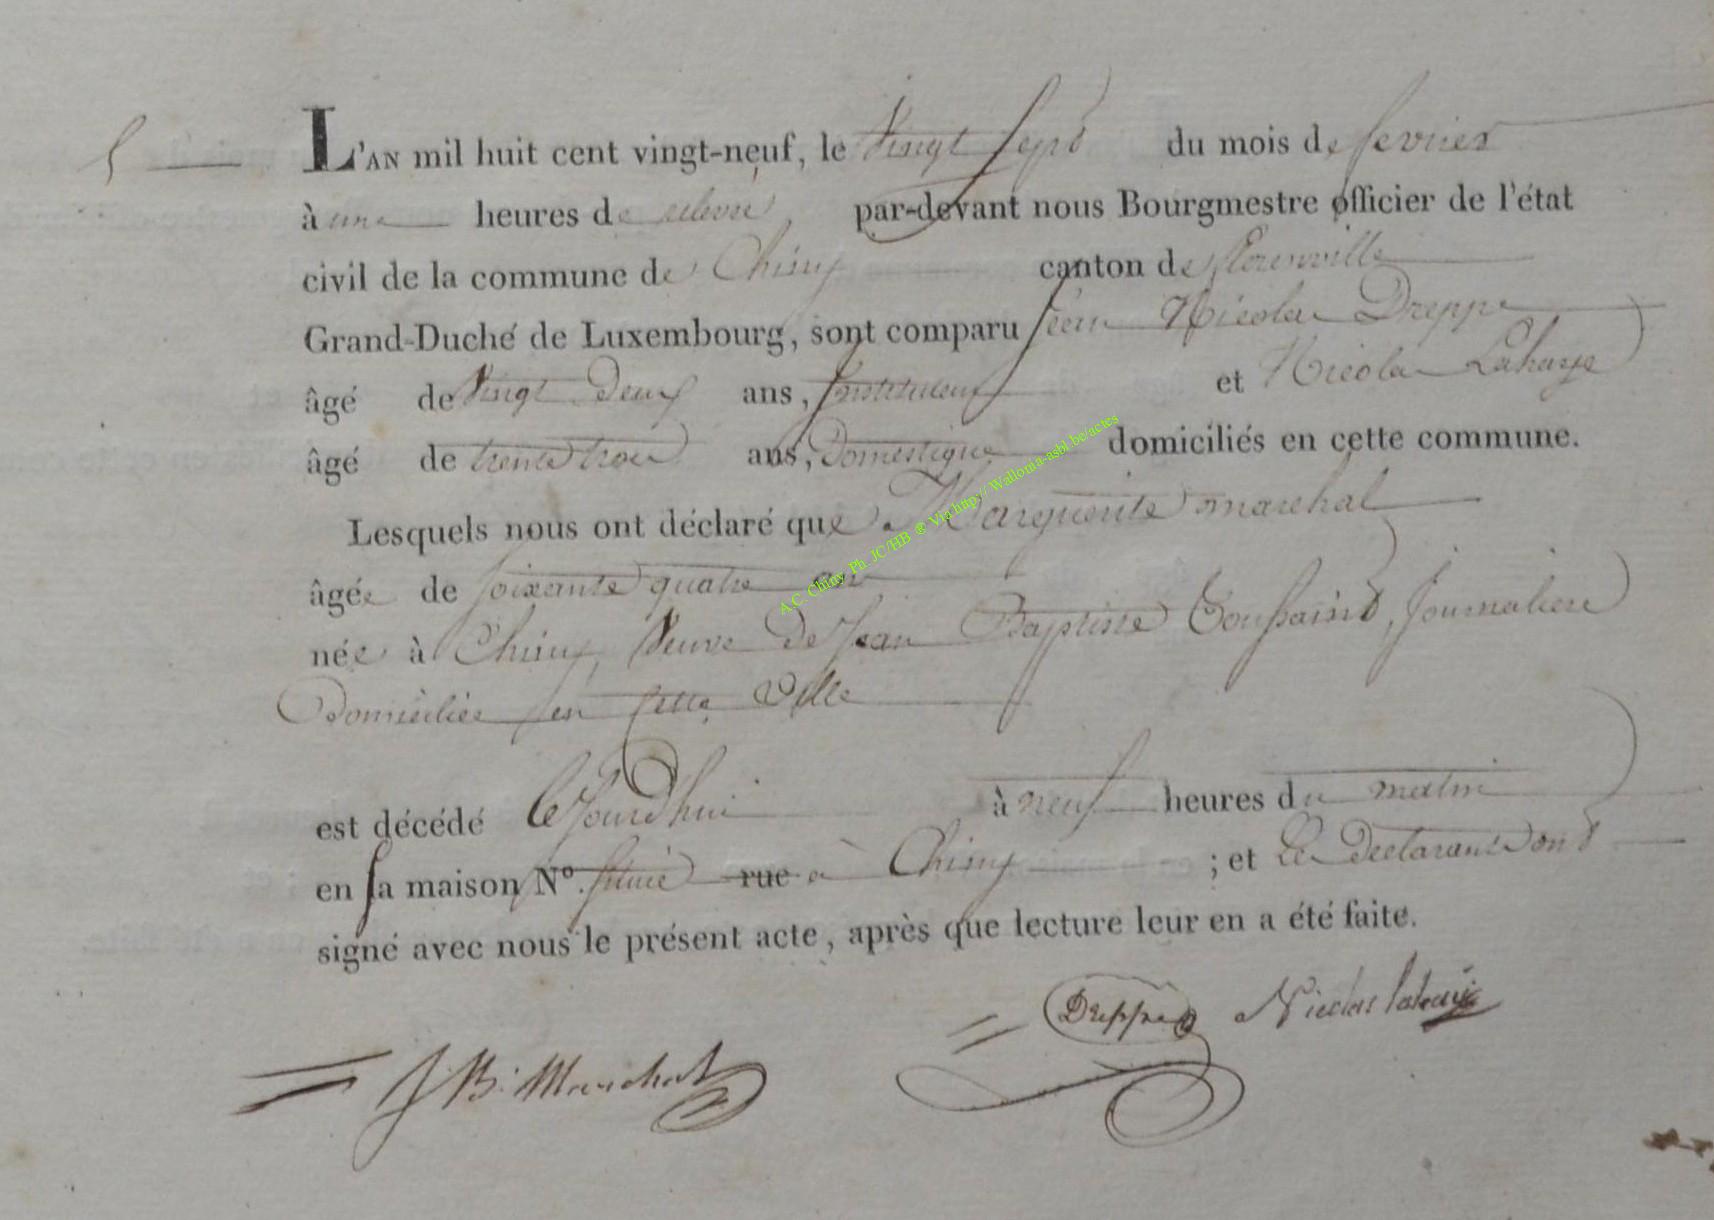 5
L'AN mil huit cent vingt-neuf, le vingt sept du mois de fevrier
à une heures de relevée par-devant nous Bourgmestre officier de l'état
civil de la commune de Chiny canton de florenville
Grand-Duché de Luxembourg, sont comparu jean Nicolas Dreppe
âgé de vingt deux ans, instituteur et Nicolas Lahaye
âgé de trente trois ans, Domestique domiciliés en cette commune.
Lesquels nous ont déclaré que Marguerite marechal
âgée de soixante quatre ans
née à Chiny, Veuve de Jean Baptiste Toussaint, Journaliere
Domiciliée en cette ville
est décédé Cejourdhui à neuf heures du matin
en sa maison N°. située rue à Chiny ; et les declarants ont
signé avec nous le présent acte, après que lecture leur en a été faite.
Dreppe Nicolas lahaye
J B. Marechal
A.C. Chiny Ph. JC/HB ® Via http://Wallonia-asbl.be/actes